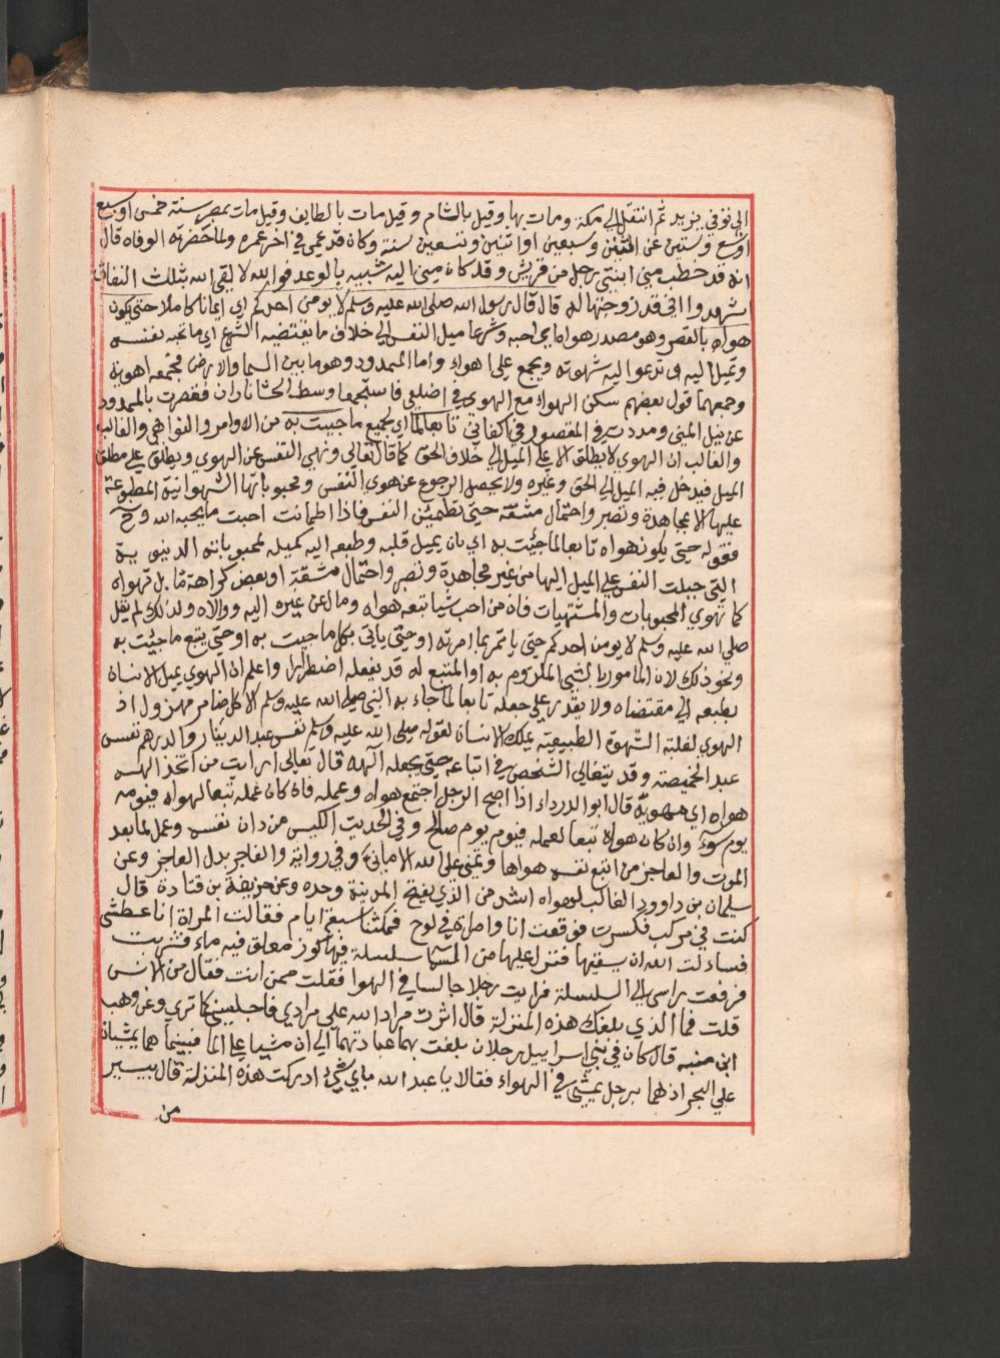 الي نوفي يزيد ثم انتقل الي مكة ومات بها وقيل بالشام وقيل مات بالطايف وقيل مات بمصر سنة خمس او سبع
او تسع وستين عن اثنين وسبعين او اثنين وتسعين سنة وكان قد عمي في اخر عمره ولما حضرته الوفاه قال
انه قد خطب مني ابنتي رجل من قريش وقد كان مني اليه شبيه بالوعد فوالله لا يلقي الله بثلث النفاق
اشهدوا اني قد زوجتها له قال قال رسول الله صلى الله عليه وسلم لا يومن احدكم اي ايمانا كاملا حتي يكون
هواه بالقصر وهو مصدر هواه اي احبه وشرعا ميل النفس الي خلاف ما يقتضيه الشرع اي ما تحبه نفسه
وتميل اليه اي تدعوا اليه شهوته ويجمع علي اهواء واما الممدود وهو ما بين السما والارض فجمعه اهوية
وجمعهما قول بعضهم سكن الهواء مع الهوي في اضلعي فاستجمعا وسط الحشا ناران فقصرت بالممدود
عن نيل المني ومددت في المقصور في اكفاني تابعا لما اي لجميع ما جيت به من الاوامر والنواهي والغالب
والغالب ان الهوي لا يطلق الا علي الميل الي خلاف الحق كما قال تعالي ونهي النفس عن الهوي ويطلق علي مطلق
الميل فيدخل فيه الميل الي الحق وغيره ولا يحصل الرجوع عن هوي النفس ومحبوباتها الشهوانية المطبوعة
عليها الا بمجاهدة وتصبر واحتمال مشقة حتي تطمئن النفس فاذا اطمانت احبت ما يحبه الله وح
فقوله حتي يكون هواه تابعا لما جئت به اي بان يميل قلبه وطبعه اليه كميله لمحبوباته الدنيوية
التي جبلت النفس علي الميل اليها من غير مجاهدة وتصبر واحتمال مشقة او بعض كراهة ما بل تهواه
كما تهوي المحبوبات والمشتهيات فان من احب شيا تبعه هواه ومال عن غيره اليه ووالاه ولذلك لم يقل
صلي الله عليه وسلم لا يومن احدكم حتي ياتمر بما امرته او حتي ياتي بكل ما جيت به او حتي يتبع ما جئت به
ونحو ذلك لان المامور بالشي الملزوم به او المتبع له قد يفعله اضطرارا واعلم ان الهوي يميل الانسان
بطبعه الي مقتضاه ولا يقدر علي جعله تابعا لما جاء به النبي صلي الله عليه وسلم الا كل ضامر مهزول اذ
الهوي لغلبة الشهوة الطبيعية يملك الانسان لقوله صلي الله عليه وسلم تعس عبد الدينار والدرهم تعس
عبد الخميصة وقد يتغالي الشخص في اتباعه حتي يجعله الهه قال تعالي ارايت من اتخذ الهه
هواه اي مهويه قال ابو الدرداء اذا اصبح الرجل اجتمع هواه وعمله فان كان عمله تبعا لهواه فيومه
يوم سوء وان كان هواه تبعا لعمله فيومه يوم صالح وفي الحديث الكيس من دان نفسه وعمل لما بعد
الموت والعاجز من اتبع نفسه هواها وتمني علي الله الاماني وفي رواية والفاجر بدل العاجز وعن
سليمان بن داوود الغالب لهواه اشد من الذي يفتح المدينة وحده وعن حذيفة بن قتادة قال
كنت في مركب فكسرت فوقعت انا وامراة في لوح فمكثنا سبعة ايام فقالت المراة انا عطشي
فسالت الله ان يسقيها فنزل عليها من السما سلسلة فيها كوز معلق فيه ماء فشربت
فرفعت راسي الي السلسلة فرايت رجلا جالسا في الهوا فقلت ممن انت فقال من الانس
قلت فما الذي بلغك هذه المنزلة قال اثرت مراد الله علي مرادي فاجلسني كما تري وعن وهب
ابن منبه قال كان في بني اسراييل رجلان بلغت بهما عبادتهما الي ان مشيا علي الما فبينما هما يمشيان
علي البحر اذ هما برجل يمشي في الهواء فقالا يا عبد الله باي شيء ادركت هذه المنزلة قال بيسير
من